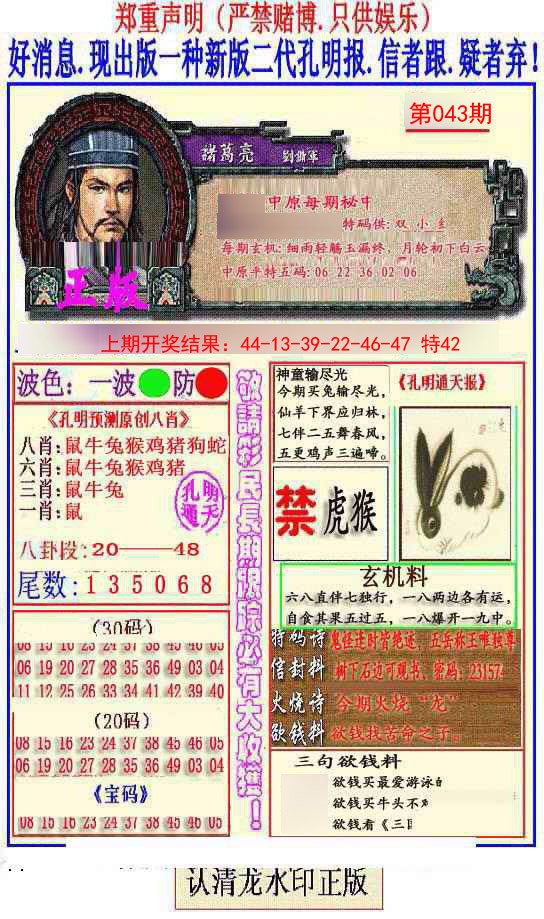 郑重声明（严禁赌博.只供娱乐）
好消息.现出版一种新版二代孔明报.信者跟.疑者弃！
第043期
諸葛亮
中原每期秘
特码供: 双 小
每期玄机: 细雨轻觞玉漏终, 月轮初下白云
中原平特五码: 06 22 36 02 06
正版
上期开奖结果：44-13-39-22-46-47 特42
波色：一波 防
《孔明预测原创八肖》
八肖: 鼠牛兔猴鸡猪狗蛇
六肖: 鼠牛兔猴鸡猪
三肖: 鼠牛兔
一肖: 鼠
孔明
通天
八卦段: 20——48
尾数: 1 3 5 0 6 8
(30码)
08 15 16 23 24 37 38 45 46 05
06 19 20 27 28 35 36 01 02 09
11 12 25 26 33 34 41 42 39 40
(20码)
08 15 16 23 24 37 38 45 46 05
06 19 20 27 28 35 36 01 02 09
《宝码》
08 15 16 23 24 37 38 45 46 05
敬請彩民長期跟踪必有大收獲！
神童输尽光
今期买兔输尽光，
仙羊下界应归林，
七伴二五舞春风，
五更鸡声三遍啼。
《孔明通天报》
禁 虎猴
玄机料
六八直伴七独行，一八两边各有运，
自食其果五过五，一八爆开一九中。
特码诗 鬼怪逢时皆绝迹，五岳称王唯独尊
信封料 树下石边可观书。密码：231574
火烧诗 今期火烧“龙”
欲钱料 欲钱找苦命之子。
三句欲钱料
欲钱买最爱游泳
欲钱买牛头不
欲钱看《三
认清龙水印正版